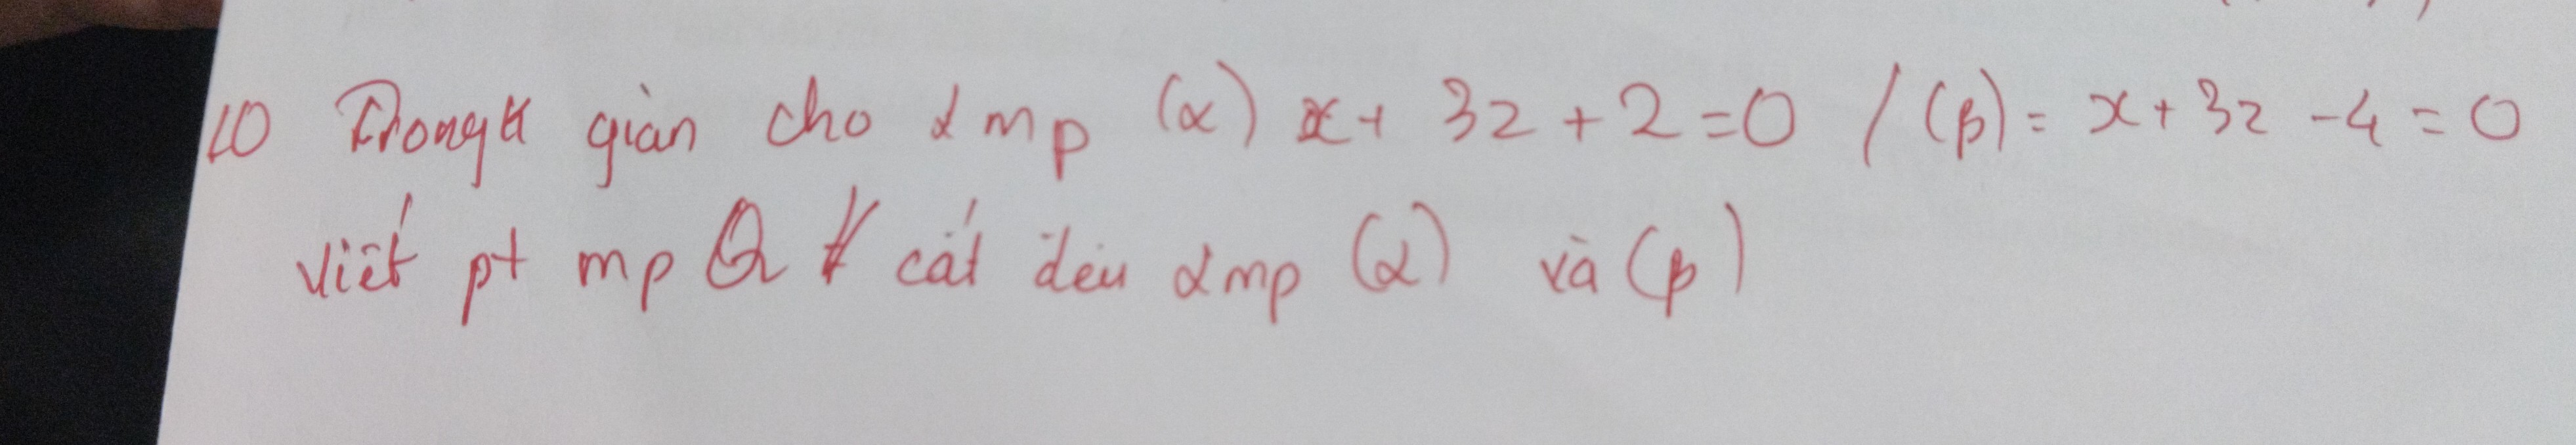 10 Trong k gian cho 2 mp (α) x + 3z + 2 = 0 / (β) = x + 3z - 4 = 0
viết pt mp Q cắt đều 2 mp (α) và (β)